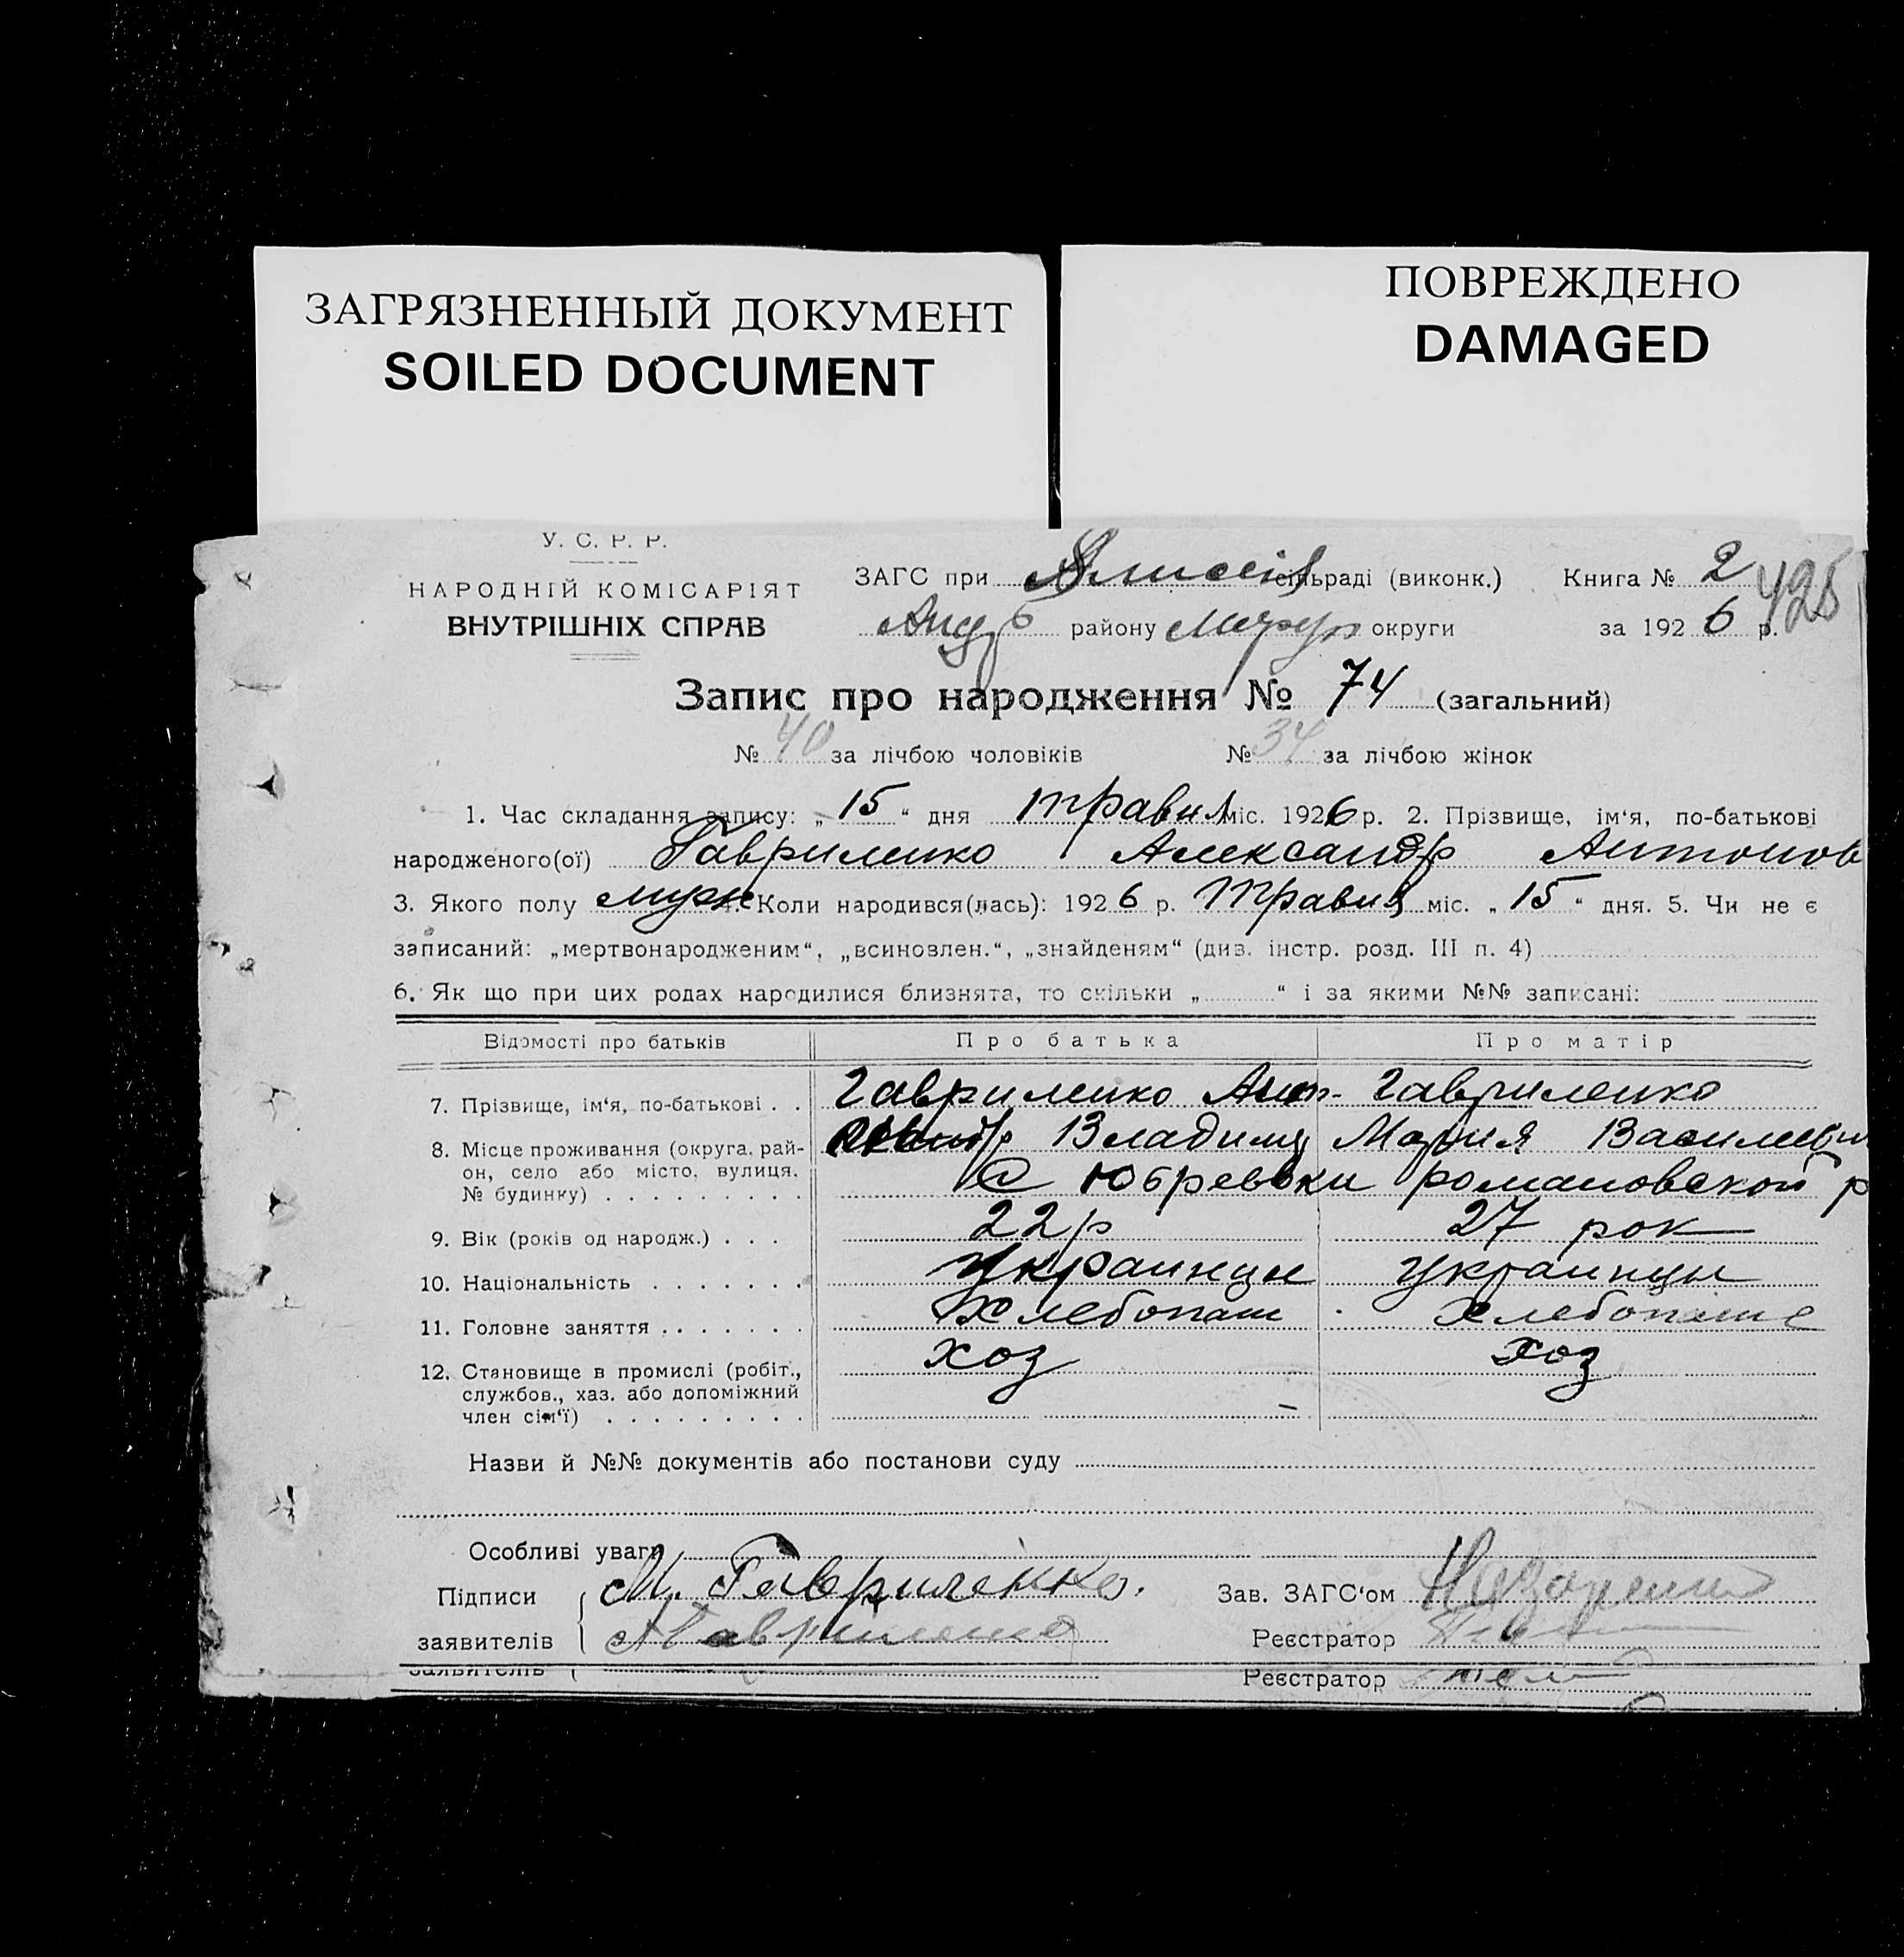 ЗАГРЯЗНЕННЫЙ ДОКУМЕНТ
SOILED DOCUMENT
ПОВРЕЖДЕНО
DAMAGED
У. С. Р. Р.
НАРОДНІЙ КОМІСАРІЯТ
ВНУТРІШНІХ СПРАВ
ЗАГС при сільраді (виконк.) Книга № 2
425
району округи за 192 6 р.
Запис про народження № 74 (загальний)
№ 40 за лічбою чоловіків № 34 за лічбою жінок
1. Час складання запису: „ 15 “ дня травня міс. 1926 р. 2. Прізвище, ім‘я, по-батькові
народженого(ої) Гавриленко Александр Антонов
3. Якого полу муж 4. Коли народився(лась): 192 6 р. Травня міс. „ 15 “ дня. 5. Чи не є
записаний: „мертвонародженим“, „всиновлен.“, „знайденям“ (див. інстр. розд. III п. 4)
6. Як що при цих родах народилися близнята, то скільки „ “ і за якими №№ записані:
Відомості про батьків Про батька Про матір
7. Прізвище, ім‘я, по-батькові . . Гавриленко Ант- Гавриленко
Владимир Мария Василевн
8. Місце проживання (округа, рай-
он, село або місто, вулиця, романовской р
№ будинку) . . . . . . . . .
9. Вік (років од народж.) . . . 22 р 27 рок
10. Національність . . . . . . . Украинцы Украинцы
11. Головне заняття . . . . . . . Хлебопаш Хлебопаше
12. Становище в промислі (робіт., хоз хоз
службов., хаз. або допоміжний
член сім‘ї) . . . . . . . . .
Назви й №№ документів або постанови суду
Особливі уваги
Підписи М. Гавриленко. Зав. ЗАГС‘ом Назаренко
заявителів А Гавриленко Реєстратор
заявителів Реєстратор